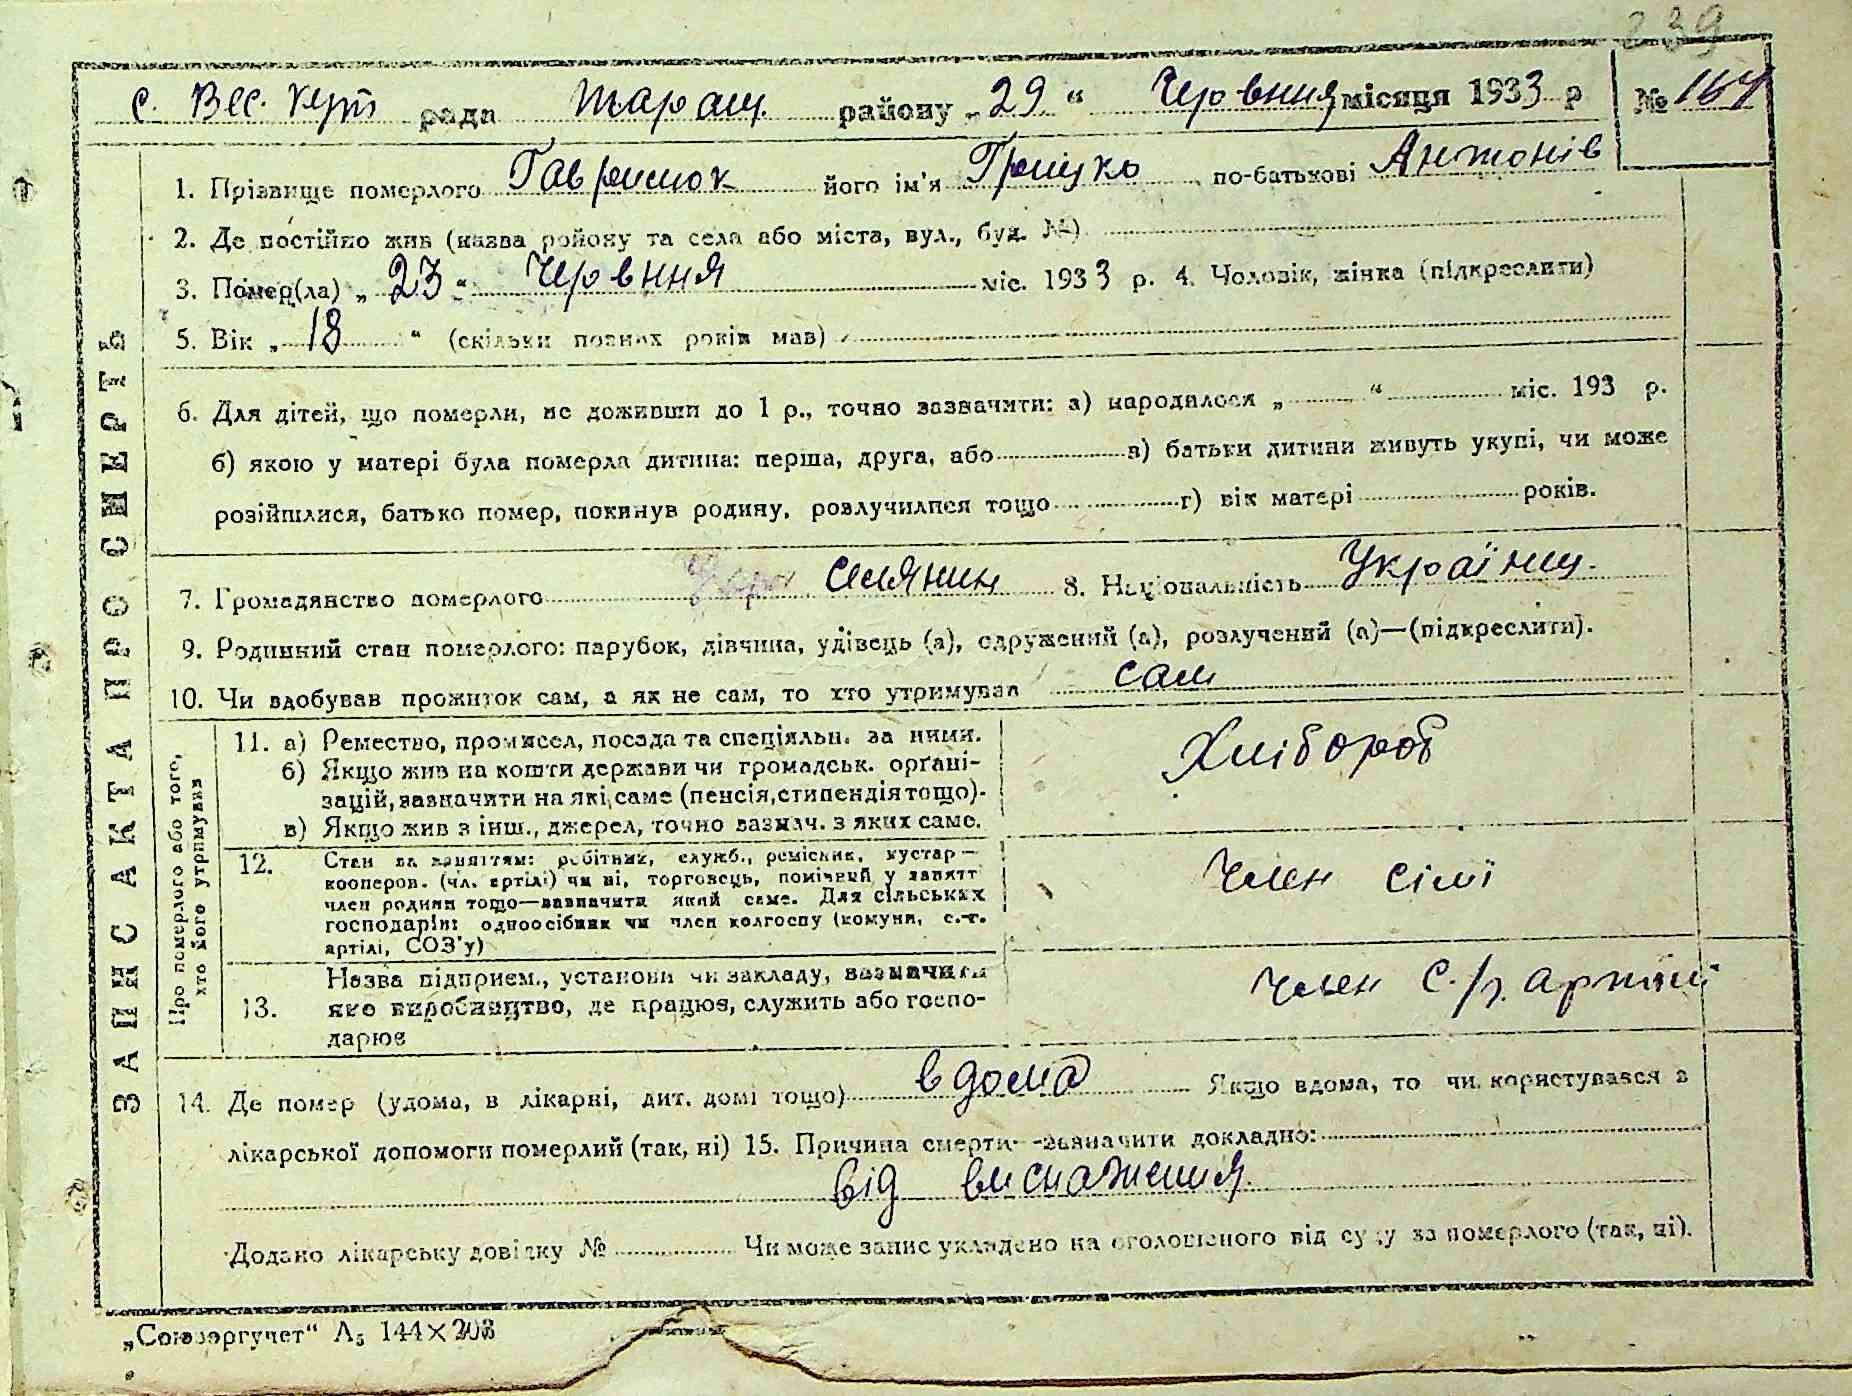 239
с. Вес. Кут рада Таращ. району „29“ Червня місяця 1933 р № 164
ЗАПИС АКТА ПРО СМЕРТЬ
1. Прізвище померлого Гаврилюк його ім'я Грицко по-батькові Антонів
2. Де постійно жив (назва району та села або міста, вул., буд. №)
3. Помер(ла) „23“ Червня міс. 1933 р. 4. Чоловік, жінка (підкреслити)
5. Вік „18“ (скільки повних років мав)
6. Для дітей, що померли, не доживши до 1 р., точно зазначити: а) народилося „ “ міс. 193 р.
б) якою у матері була померла дитина: перша, друга, або в) батьки дитини живуть укупі, чи може
розійшлися, батько помер, покинув родину, розлучилися тощо г) вік матері років.
7. Громадянство померлого селянин 8. Національність Українц.
9. Родинний стан померлого: парубок, дівчина, удівець (а), одружений (а), розлучений (а)—(підкреслити).
10. Чи здобував прожиток сам, а як не сам, то хто утримував сам
Про померлого або того, хто його утримував
11. а) Ремество, промисел, посада та спеціяльн. за ними.
б) Якщо жив на кошти держави чи громадськ. органі-
зацій, зазначити на які саме (пенсія, стипендія тощо).
в) Якщо жив з інш., джерел, точно зазнач. з яких саме.
Хлібороб
12. Стан за заняттям: робітник, служб., ремісник, кустар—
кооперов. (чл. артілі) чи ні, торговець, помічний у занятт
член родини тощо—зазначити який саме. Для сільських
господарів: одноосібник чи член колгоспу (комуни, с.-г.
артілі, СОЗ'у)
Член сімї
13. Назва підприєм., установи чи закладу, зазначити
яке виробництво, де працює, служить або госпо-
дарює
Член с./г. артілі
14. Де помер (удома, в лікарні, дит. домі тощо) вдома Якщо вдома, то чи користувався з
лікарської допомоги померлий (так, ні) 15. Причина смерти—зазначити докладно:
від виснаження.
Додано лікарську довідку № Чи може запис укладено на оголошеного від суду за померлого (так, ні).
„Союзоргучет“ А₅ 144×203